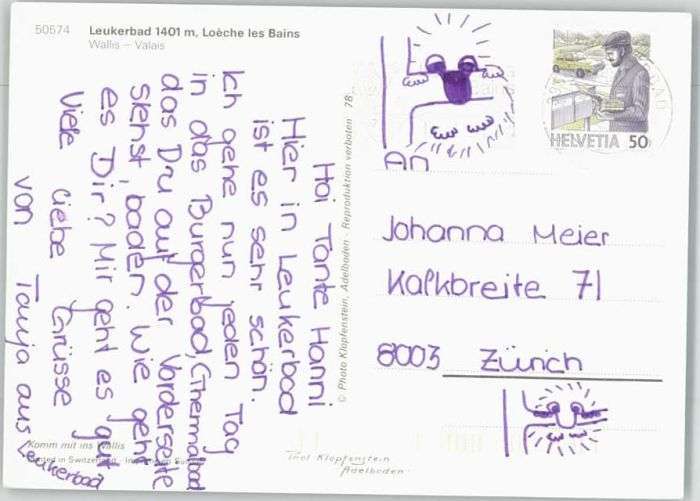 50574
Leukerbad 1401 m, Loèche les Bains
Wallis – Valais
Hoi Tante Hanni
Hier in Leukerbad
ist es sehr schön.
Ich gehe nun jeden Tag
in das Burgerbad, (Thermalbad
das Du auf der Vorderseite
siehst, baden. Wie geht
es Dir? Mir geht es gut
Viele liebe Grüsse
von Tanja aus Leukerbad
Komm mit ins Wallis
Printed in Switzerland
© Photo Klopfenstein, Adelboden - Reproduktion verboten 78
Klopfenstein
Adelboden
HELVETIA 50
An
Johanna Meier
Kalkbreite 71
8003 Zürich